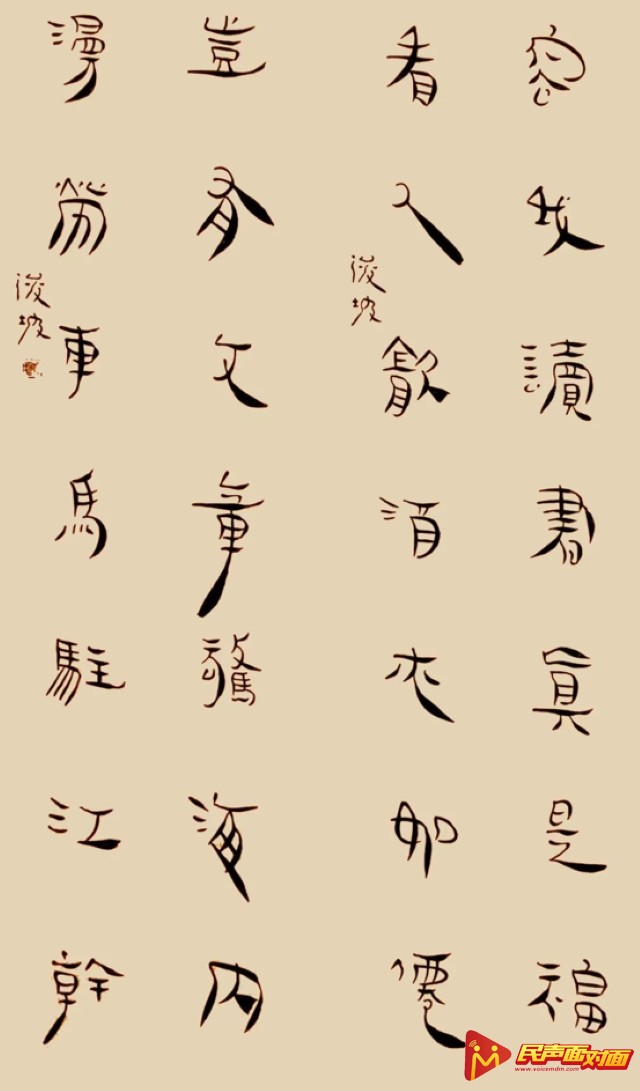 容我讀書眞是福
看人飲酒亦如僊
浚坡
豈有文章驚海内
漫勞車馬駐江幹
浚坡
民声面对面
www.voicemdm.com